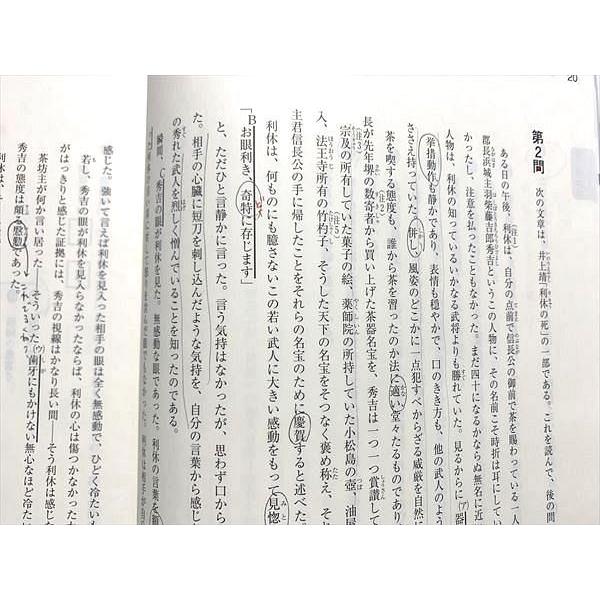 20
第2問 次の文章は、井上靖「利休の死」の一部である。これを読んで、後の問
ある日の午後、利休は、自分の点前で信長公の御前で茶を賜わっている一人
郡長浜城主羽柴藤吉郎秀吉というこの人物に、その名前こそ時折は耳にしてい
かったし、注意を払ったこともなかった。まだ四十になるかならぬ無名に近
人物は、利休の知っているいかなる武将よりも勝れていた。見るからに(ア)器
挙措動作も静かであり、表情も穏やかで、口のきき方も、他の武人のよう
ささえ持っていた。併し、風姿のどこかに一点犯すべからざる威厳を自然に
茶を喫する態度も、誰から茶を習ったのか法に適い、堂々たるものであり
長が先年堺の数寄者から買い上げた茶器名宝を、秀吉は一つ一つ賞讃して
宗及の所有していた菓子の絵、薬師院の所持していた小松島の壺、油屋
入、法王寺所有の竹杓子、そうした天下の名宝をそつなく褒め称え、そ
主君信長公の手に帰したことをそれらの名宝のために慶賀すると述べた。
利休は、何ものにも臆さないこの若い武人に大きい感動をもって見惚
「Bお眼利き、奇特に存じます」
と、ただひと言静かに言った。言う気持はなかったが、思わず口から
た。相手の心臓に短刀を刺し込んだような気持を、自分の言葉から感じ
の秀れた武人を烈しく憎んでいることを知ったのである。
瞬間、C秀吉の眼が利休を見た。無感動な眼であった。利休の言葉を
感じた。強いて言えば利休を見入った相手の眼は全く無感動で、ひどく冷たいも
若し、秀吉の眼が利休を見入らなかったならば、利休の心は傷つかなかった
がはっきりと感じた証拠には、秀吉の視線はかなり長い間――そう利休は感じた
茶坊主が何か言い居った――そういった(ウ)歯牙にもかけない無心なほど冷た
秀吉の態度は頗る慇懃であった。
利休は、